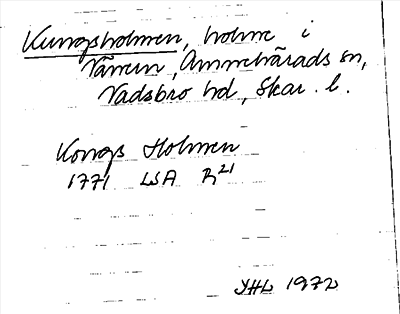 Kungsholmen, holme i
Vänern, Amnehärads sn,
Vadsbro hd, Skar. l.
Kongs Holmen
1771 LSA R21
JHL 1972